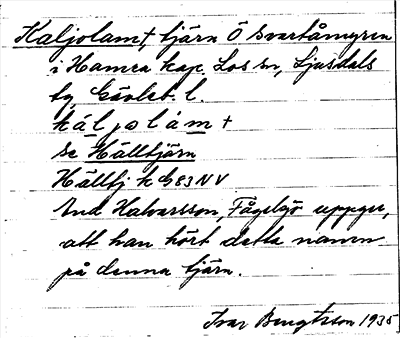 Kaljolamt, tjärn Ö Svartåmyren
i Hamra kap. Los sn, Ljusdals
tg, Gävleb. l.
káljolámt
Se Hälltjärn
Hälltj k G 83 NV
And Halvarsson, Fågelsjö uppger,
att han hört detta namn
på denna tjärn.
Ivar Bengtsson 1935